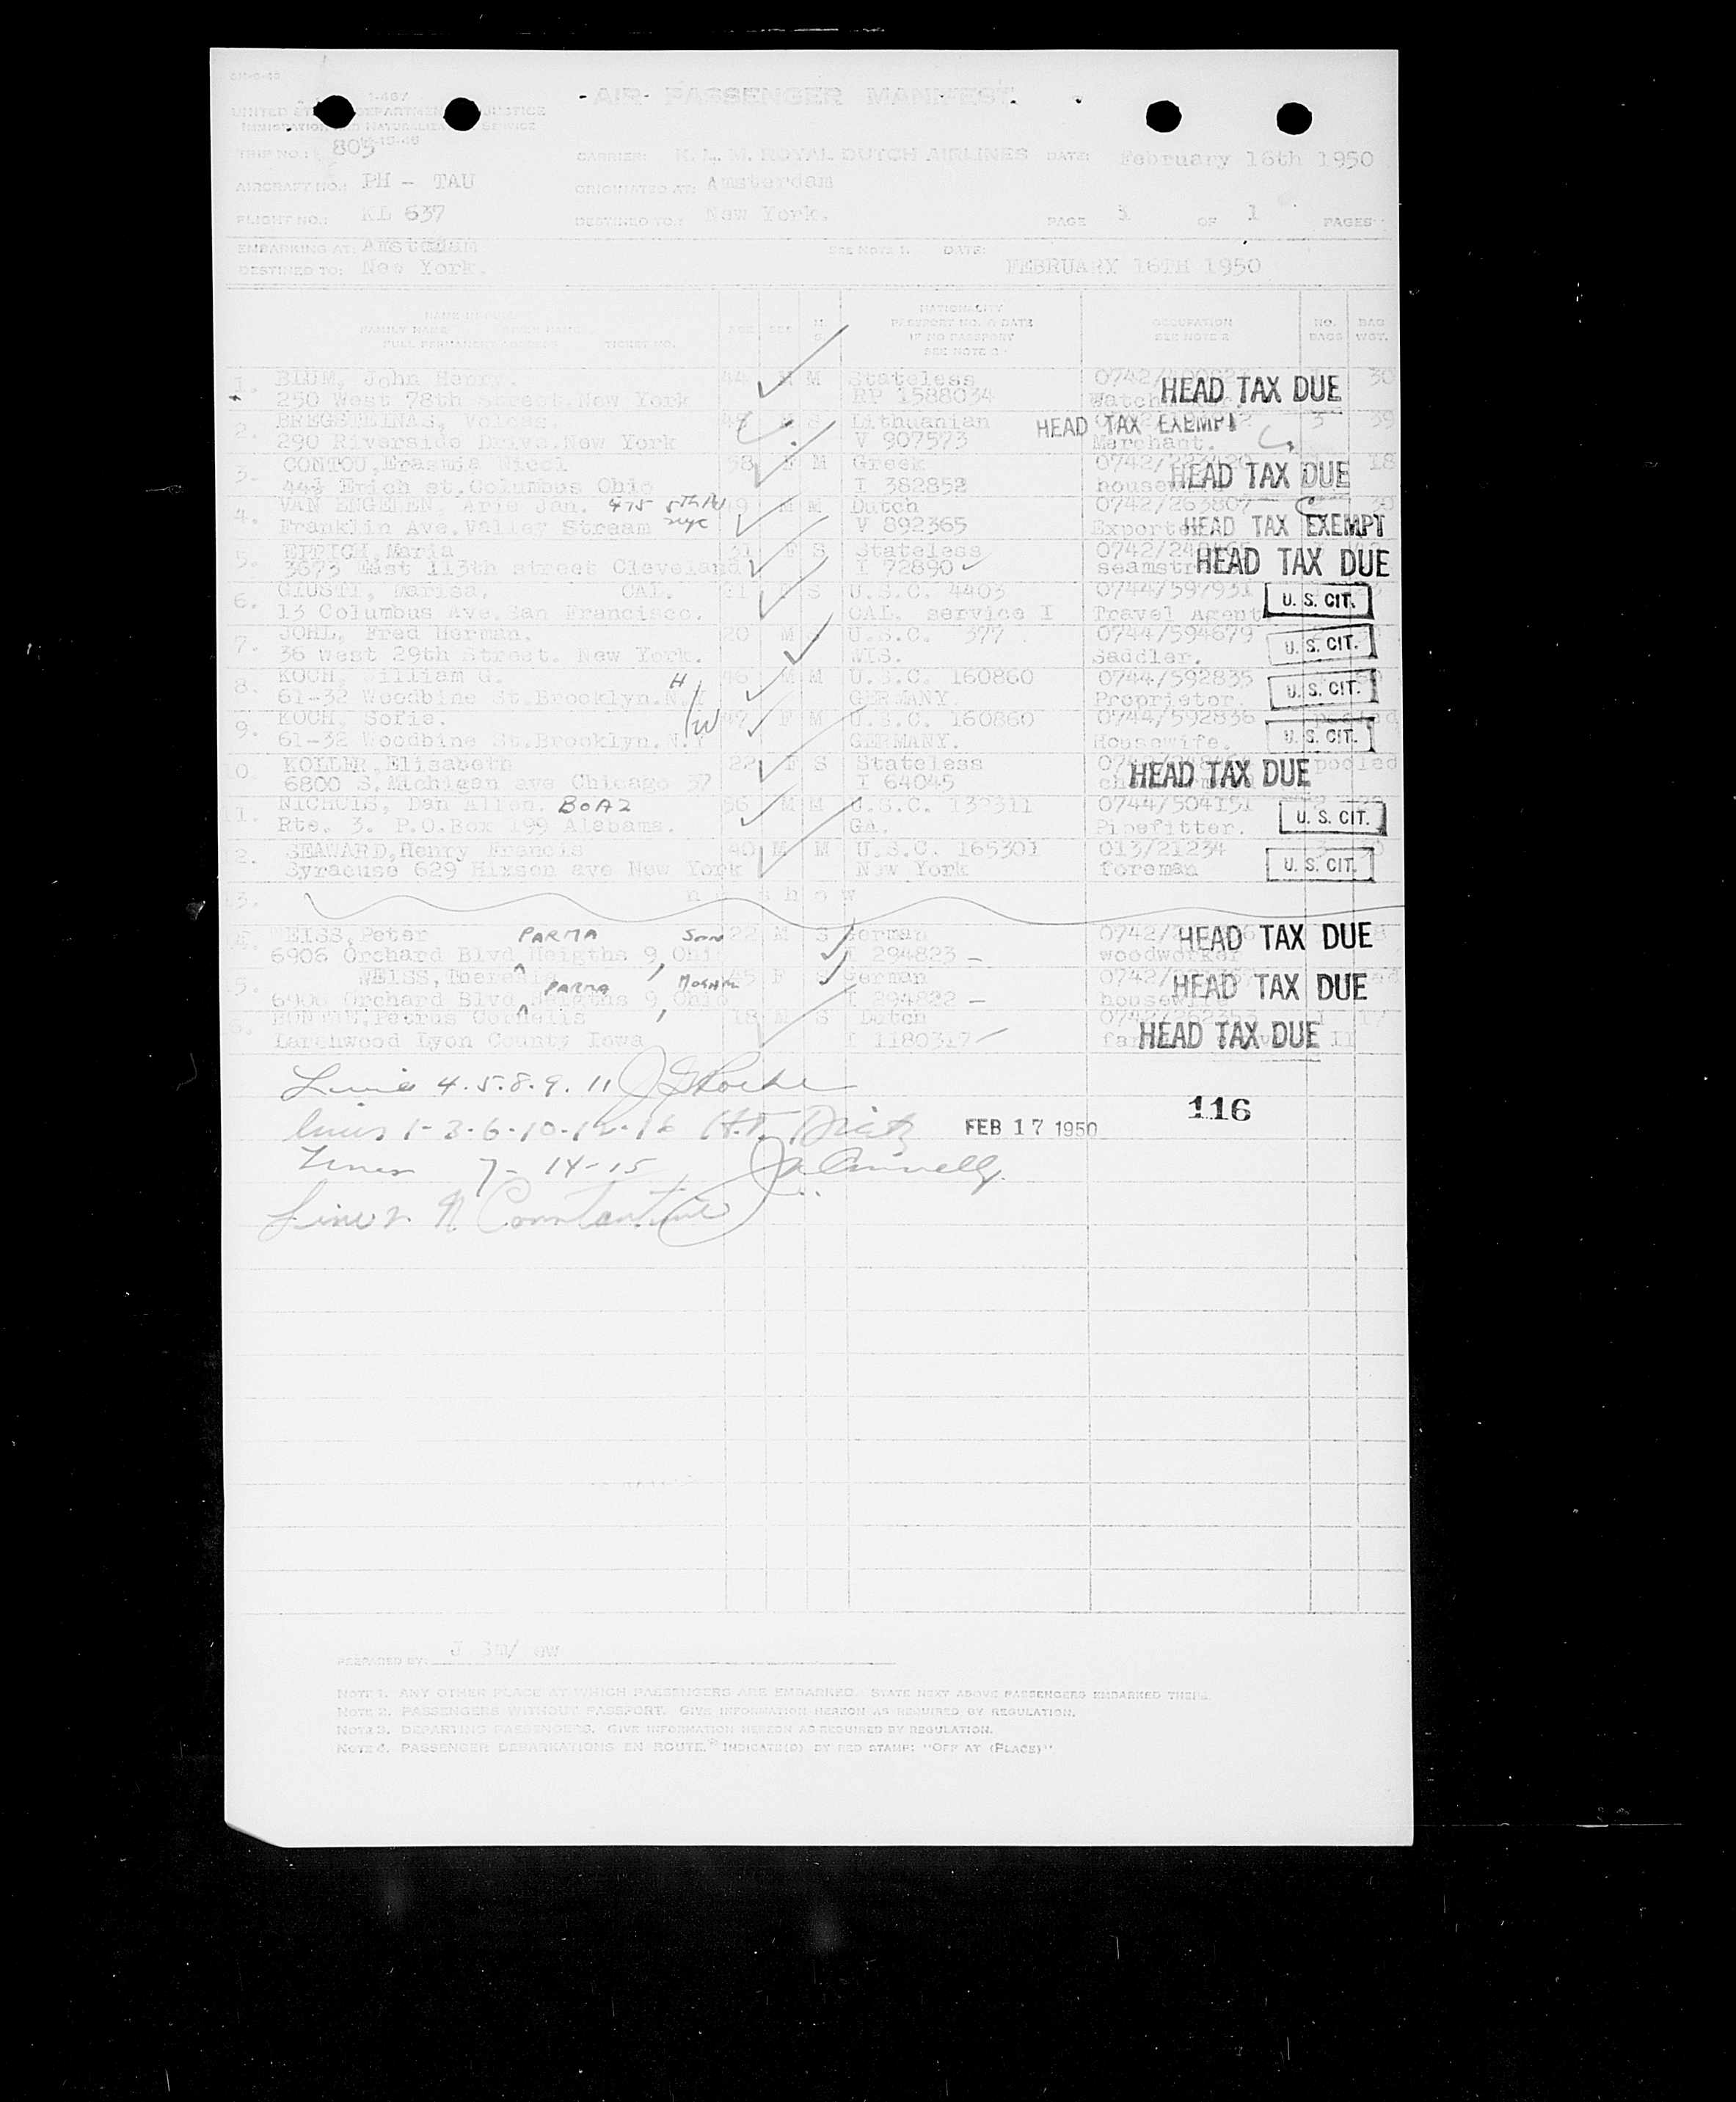 AIR PASSENGER MANIFEST
UNITED STATES DEPARTMENT OF JUSTICE
IMMIGRATION AND NATURALIZATION SERVICE
TRIP NO.: 805 CARRIER: K. L. M. ROYAL DUTCH AIRLINES DATE: February 16th 1950
AIRCRAFT NO.: PH - TAU ORIGINATED AT: Amsterdam
FLIGHT NO.: KL 637 DESTINED TO: New York. PAGE OF 1 PAGES
EMBARKING AT: SEE NOTE 1. DATE:
DESTINED TO: New York. FEBRUARY 16TH 1950
FAMILY NAME
FULL PERMANENT ADDRESS TICKET NO. AGE SEX M. S. NATIONALITY PASSPORT NO. & DATE IF NO PASSPORT SEE NOTE 2 OCCUPATION SEE NOTE 2 NO. BAGS BAG WGT.
1. BLUM, John Henry. 44 M M Stateless HEAD TAX DUE 30
250 West 78th Street. New York RP 1588034
2. S Lithuanian HEAD TAX EXEMPT 3 39
290 Riverside Drive. New York V 907573 Merchant.
3. CONTOU, Erasmia Nicol 58 F M Greek HEAD TAX DUE 18
44½ Erich st. Columbus Ohio I 382852
4. VAN ENGELEN, Arie Jan. 475 5th Av NYC M M Dutch 0742/263807
Franklin Ave. Valley Stream V 892365 Exporter HEAD TAX EXEMPT
5. Maria 31 F S Stateless HEAD TAX DUE
3673 East 113th street Cleveland I 72890
6. GIUSTI, Marisa. CAL. 21 F S U.S.C. 4403 0744/597931
13 Columbus Ave. San Francisco. CAL. service I Travel Agent U. S. CIT.
7. JOHL, Fred Herman. 20 M U.S.C. 377 0744/594679
36 west 29th Street. New York. WIS. Saddler. U. S. CIT.
8. KOCH, William G. H 46 M M U.S.C. 160860 0744/592835
61-32 Woodbine St. Brooklyn. N.Y GERMANY. Proprietor. U. S. CIT.
9. KOCH, Sofie. W 47 F M U.S.C. 160860 0744/592836 pooled
61-32 Woodbine St. Brooklyn. N.Y GERMANY. Housewife. U. S. CIT.
10. KOLLER, Elisabeth 22 F S Stateless HEAD TAX DUE pooled
6800 S. Michigan ave Chicago 37 I 64045
11. NICHOLS, Dan Allen. BOAZ 36 M M U.S.C. 132311 0744/504151
Rte. 3. P.O. Box 199 Alabama. GA. Pipefitter. U. S. CIT.
12. SEAWARD, Henry Francis 40 M M U.S.C. 165301 013/21234
Syracuse 629 Hixson ave New York New York foreman U. S. CIT.
13. n o s h o w
14. WEISS, Peter PARMA Son 22 M S German HEAD TAX DUE
6906 Orchard Blvd Heigths 9, Ohio I 294823 - woodworker
15. WEISS, Theresia PARMA MOTHER 45 F S German HEAD TAX DUE
6906 Orchard Blvd Heigths 9, Ohio I 294822 - housewife
16. Petrus Cornelis 18 M S Dutch 0742/262353 1 17
Larchwood Lyon County Iowa I 1180317 HEAD TAX DUE
Lines 4.5.8.9.11
lines 1-3-6-10-12-16 H.F. Dietz FEB 17 1950 116
Lines 7-14-15
Line 2. N Constantine
PREPARED BY:
NOTE 1. ANY OTHER PLACE AT WHICH PASSENGERS ARE EMBARKED. STATE NEXT ABOVE PASSENGERS EMBARKED THERE.
NOTE 2. PASSENGERS WITHOUT PASSPORT. GIVE INFORMATION HEREON AS REQUIRED BY REGULATION.
NOTE 3. DEPARTING PASSENGERS. GIVE INFORMATION HEREON AS REQUIRED BY REGULATION.
NOTE 4. PASSENGER DEBARKATIONS EN ROUTE. INDICATE(D) BY RED STAMP: "OFF AT (PLACE)"